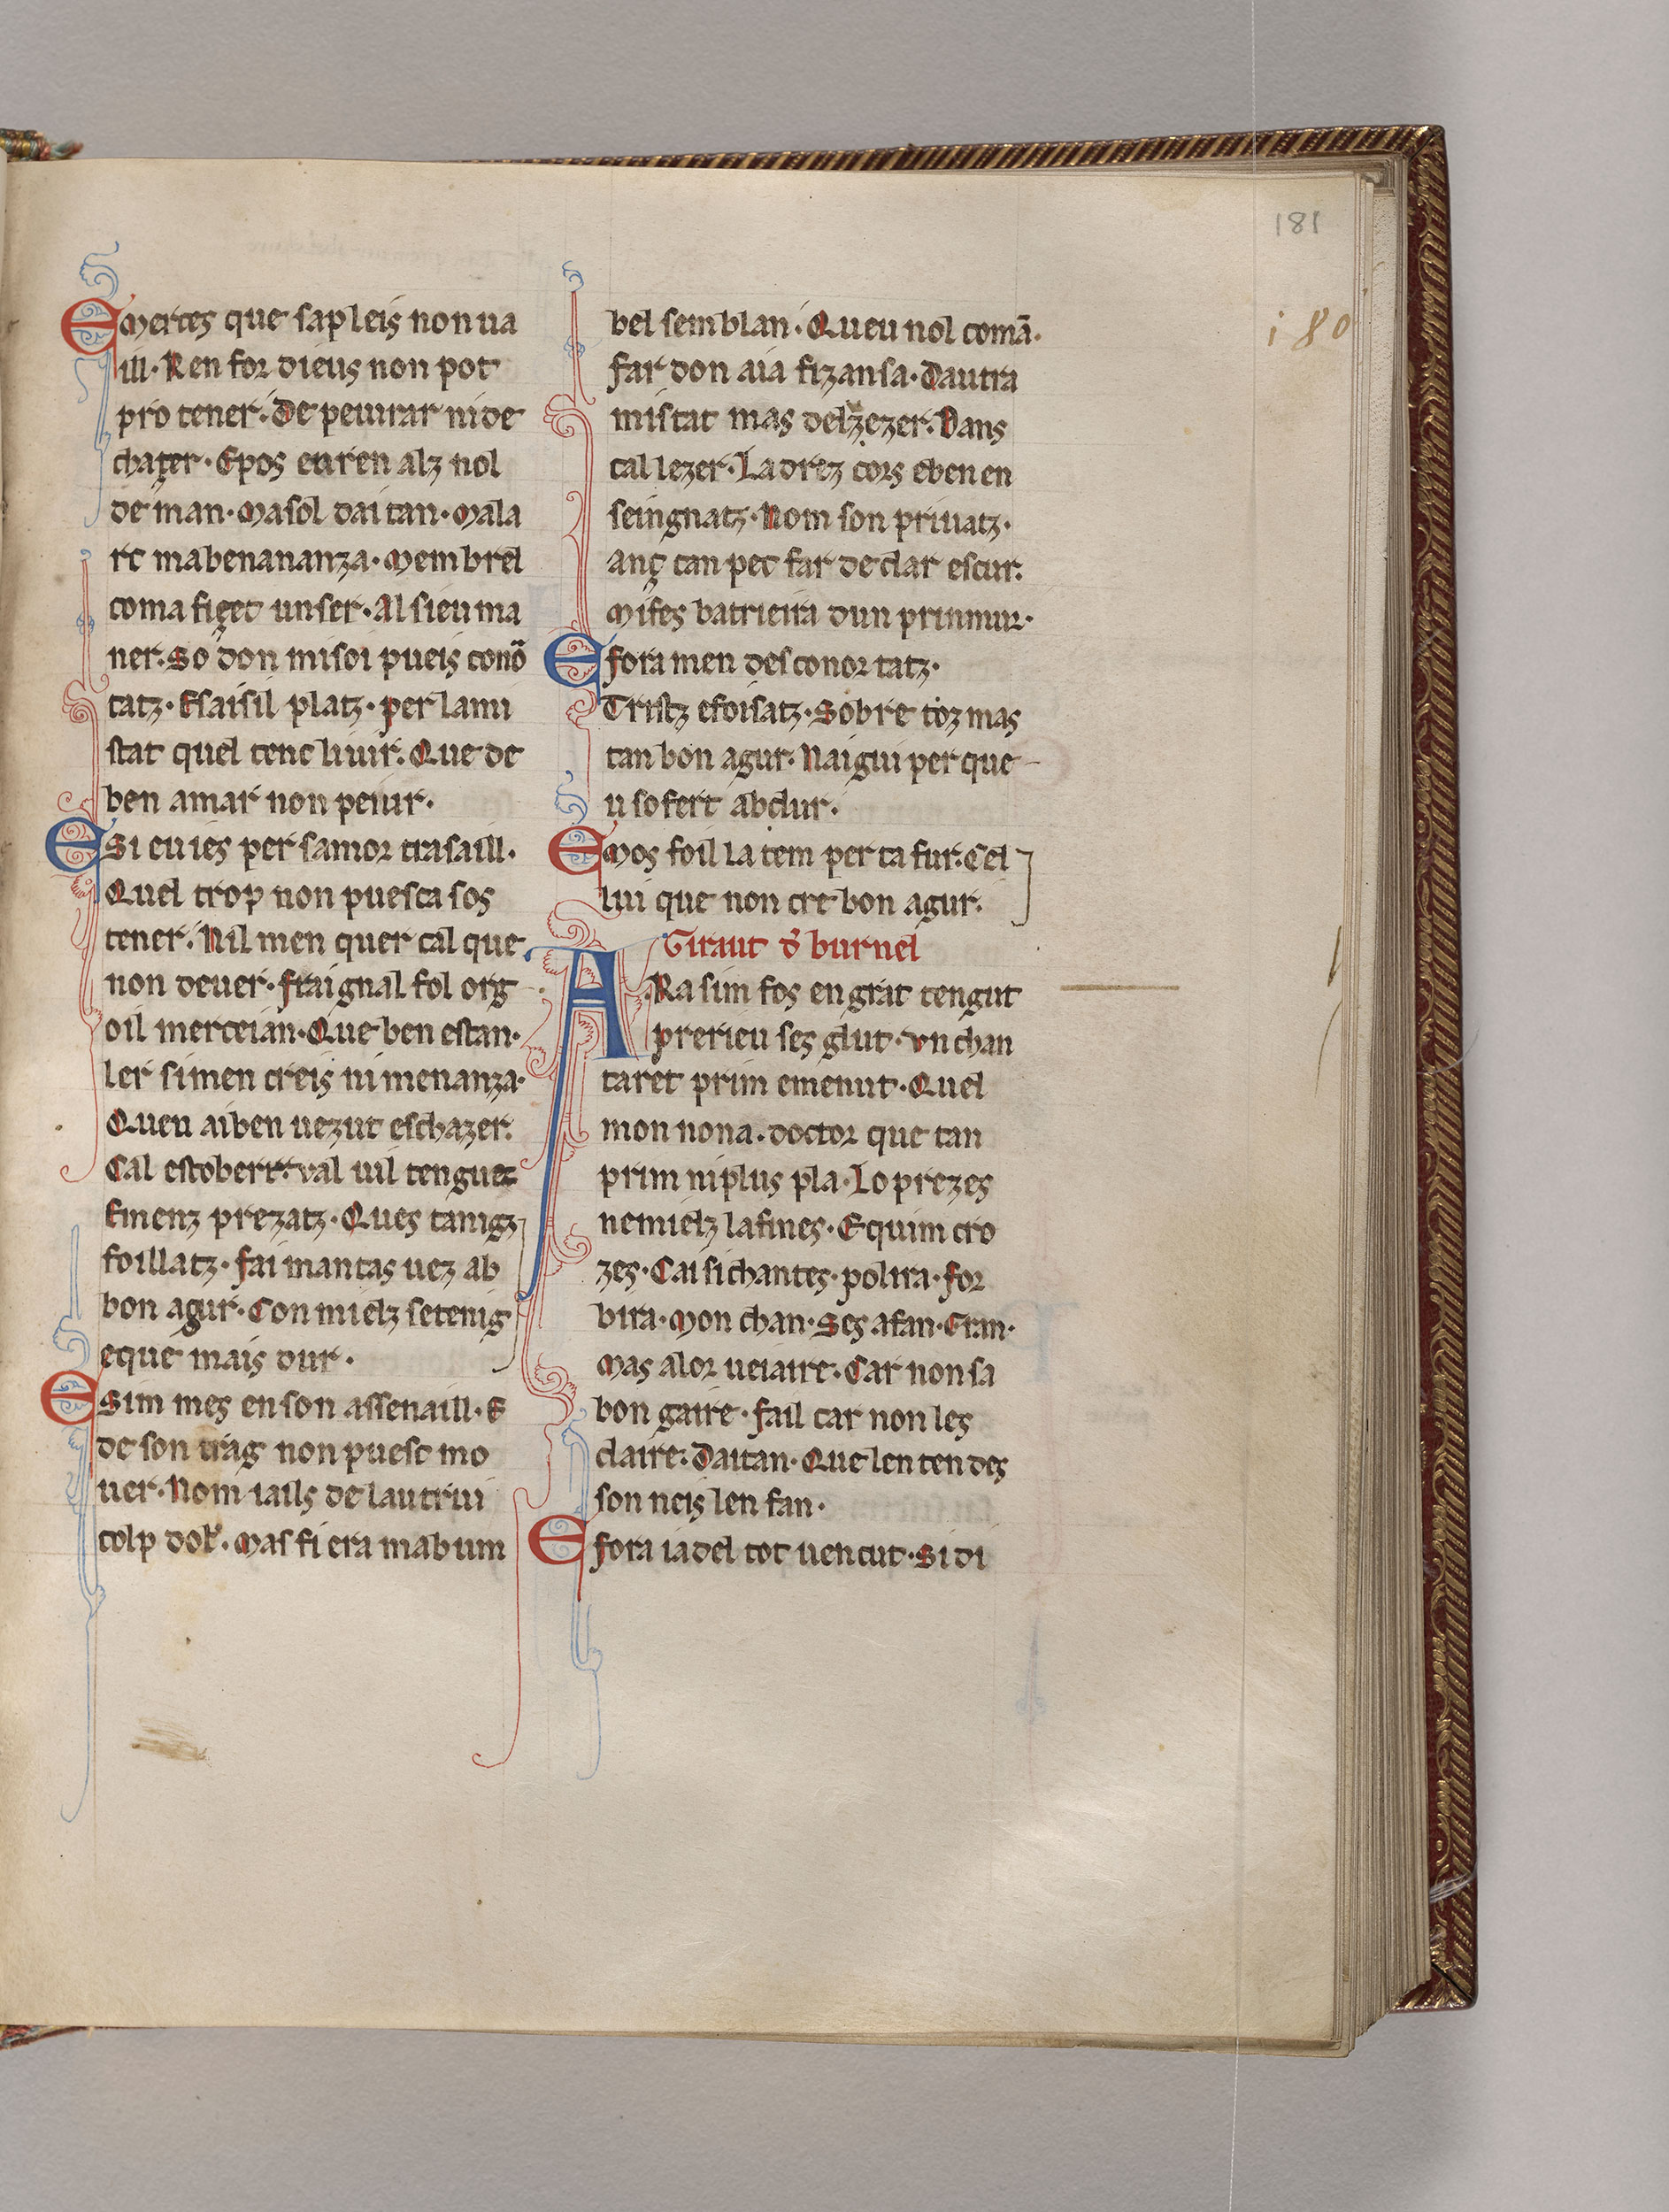 181
i80
Emerces que sapleis non ua
ill. Ren for dieus non pot
pro tener. De peiurar ni de
chazer. Epos en ren alz nol
deman. Masol daitan. Mala
rc mabenananza. Membrel
coma fizet un ser. Al sieu ma
ner. So don misoi pueis conō
tatz. Esaisil platz. per lami
stat quel tenc liuir. Que de
ben amar non peiur.
Esi euies per samor trasaill.
Quel trop non puesca sos
tener. Nil men quer cal que
non deuer. fraignal fol org
oil merceian. Que ben estan.
ler simen creis ni menanza.
Quen aiben uezut eschazer.
Cal estobert. val uil tenguet
Emenz prezatz. Ques tanigz
foillatz. fai mantas uez ab
bon agur. Con mielz setenig
eque mais dur.
Esim mes enson assenaill. E
de son trag non puesc mo
uer. Nom iails de lautrui
colp doler. Mas fi era mab um
bel semblan. Queu nol comā.
far don aia fizansa. Dautra
mistat mas delzezer. Dans
cal lezer. Ladrez cors eben en
seingnatz. Nom son priuatz.
anz can pec far de clar escur.
Mifes batrieira dun prinmur.
Efora men desconortatz.
Tristz efoisatz. Sobre toz mas
tan bon agur. Naigui per que
u sofert abdur.
Emos foil la tem per ta fur. Cel
lui que non cre bon agur.
Giraut d̄ burnel
ARa sim fos en grat tengut
prerieu ses glut. vn chan
taret prim emenut. Quel
mon nona. doctor que tan
prim niplus pla. Lo prezes
nemielz lafines. Equim cro
zes. Cai si chantes. polira. for
bira. Mon chan. Ses afan. Gran.
Mas alor ueiaire. Car non sa
bon gaire. fail car non les
claire. Daitan. Quelen ten des
son neis len fan.
Efora iadel tot uencut. Si di